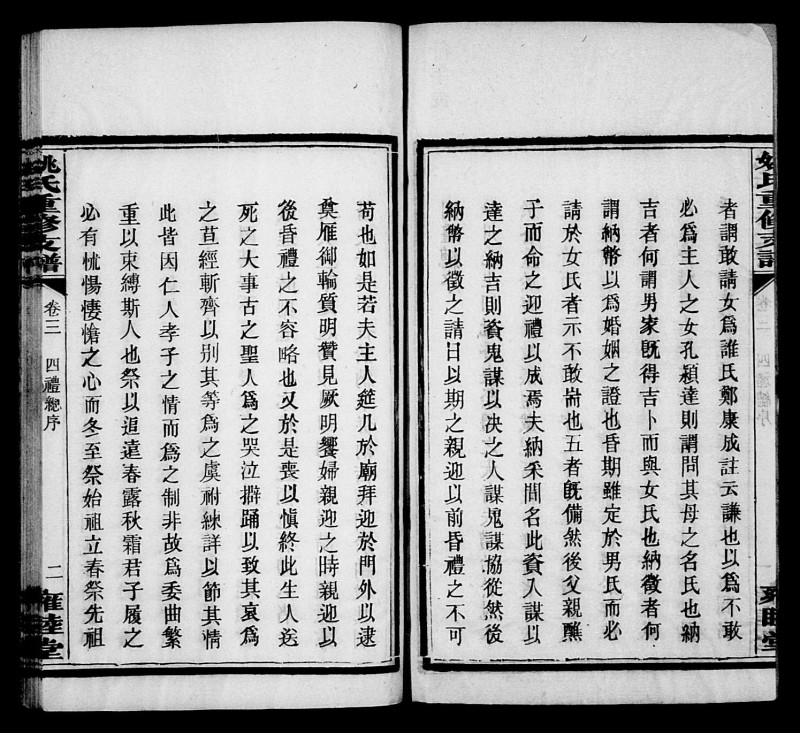 姚氏重修支譜
雍睦堂
者謂敢請女爲誰氏鄭康成註云謙也以爲不敢
必爲主人之女孔穎達則謂問其母之名氏也納
吉者何謂男家旣得吉卜而與女氏也納徵者何
謂納幣以爲婚姻之證也昏期雖定於男氏而必
請於女氏者示不敢耑也五者旣備然後父親醮
子而命之迎禮以成焉夫納采問名此資人謀以
達之納吉則資鬼謀以决之人謀鬼謀協從然後
納幣以徵之請日以期之親迎以前昏禮之不可
苟也如是若夫主人筵几於廟拜迎於門外以逮
奠雁御輪質明贊見厥明饗婦親迎之時親迎以
後昏禮之不容略也又於是喪以愼終此生人送
死之大事古之聖人爲之哭泣擗踊以致其哀爲
之苴絰斬齊以別其等爲之虞祔練詳以節其情
此皆因仁人孝子之情而爲之制非故爲委曲繁
重以束縛斯人也祭以追遠春露秋霜君子履之
必有怵惕悽愴之心而冬至祭始祖立春祭先祖
姚氏重修支譜
卷三
四禮總序
二
雍睦堂